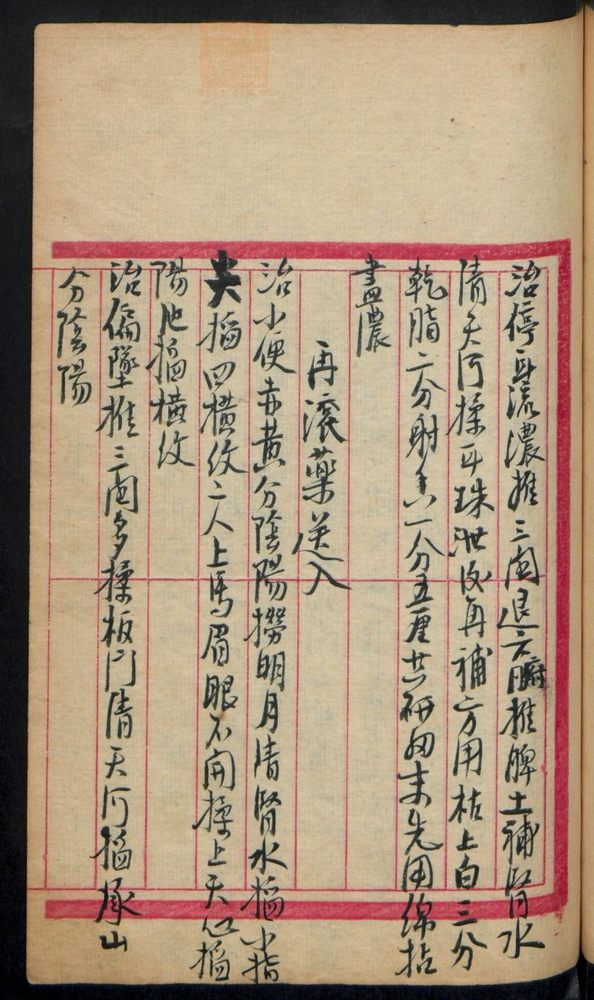 治停耳流濃推三関退六腑推脾土補腎水
清天河揉耳珠泄後再補方用枯上白三分
乾脂二分射香一分五厘共研細末先用绵拈
盡濃
再滚藥送入
治小便赤黄分陰陽撈明月清腎水搯小指
尖搯四橫紋二人上馬眉眼不開揉上天心搯
陽池搯橫紋
治偏墜推三関多揉板门清天河搯承山
分陰陽